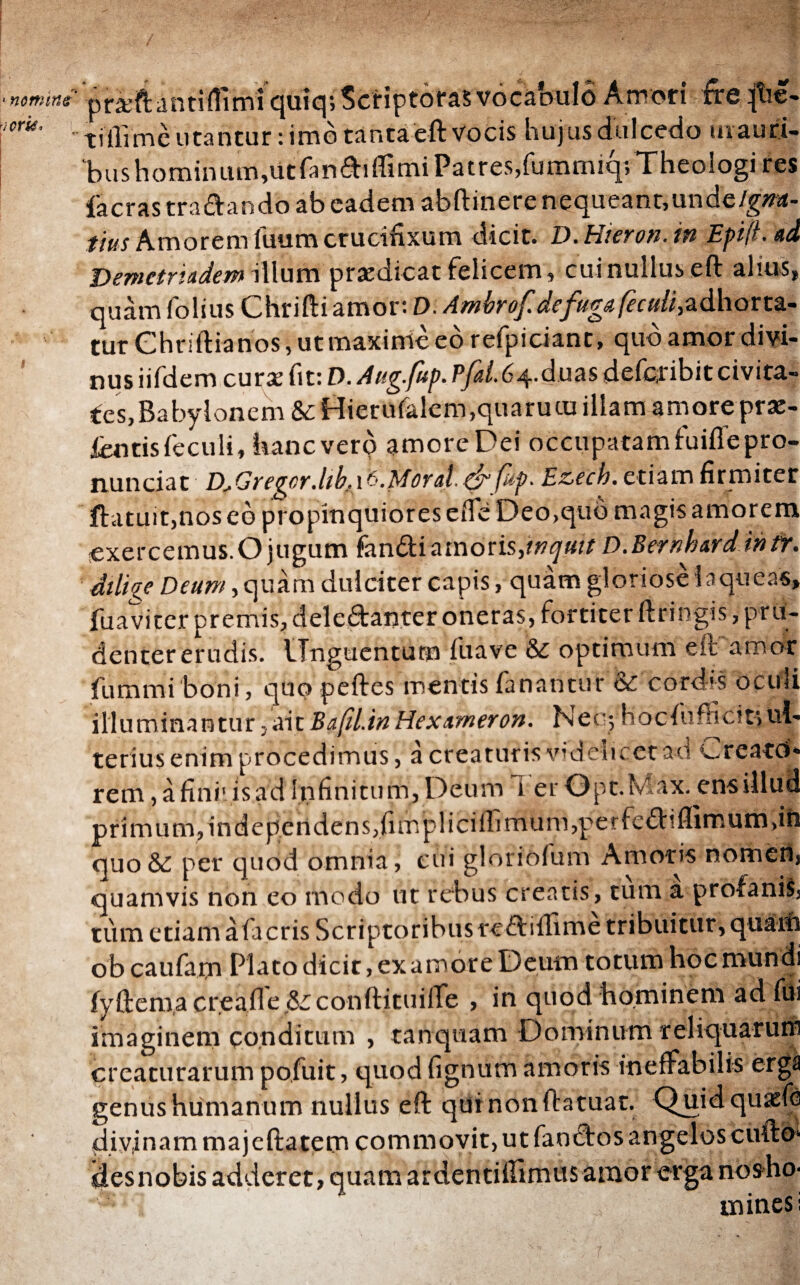 nomine præſtantiſſimi quiq; Scriptoras vocabulo Amori fre
oris. tiſſimè utantur: imò tanta eſt vocis hujus dulcedo in auri-
bus hominum, ut ſanctiſſimi Patres, ſummiq; Theologi res
ſacras tractando ab eadem abſtinere nequeant, unde Igna-
tius Amorem ſuum crucifixum dicit. D. Hieron. in Epiſt. ad
Demetriadem illum prædicat felicem, cui nullus eſt alius,
quàm ſolius Chriſti amor: D. Ambroſ. de fuga ſeculi, adhorta-
tur Chriſtianos, ut maximè eò reſpiciant, quò amor divi-
nus iiſdem curæ ſit: D. Aug. ſup. Pſal. 64. duas deſcribit civita-
tes, Babylonem & Hieruſalem, quarum illam amore præ-
ſentis ſeculi, hanc verò amore Dei occupatam fuiſſe pro-
nunciat D. Gregor. lib. 16. Moral. & ſup. Ezech. etiam firmiter
ſtatuit, nos eò propinquiores eſſe Deo, quò magis amorem
exercemus. O jugum ſancti amoris, inquit D. Bernhard in tr.
dilige Deum, quàm dulciter capis, quàm gloriosè laqueas,
ſuaviter premis, delectanter oneras, fortiter ſtringis, pru-
denter erudis. Unguentum ſuave & optimum eſt amor
ſummi boni, quo peſtes mentis ſanantur & cordis oculi
illuminantur, ait Baſil. in Hexameron. Neq; hoc ſufficit; ul-
terius enim procedimus, à creaturis videlicet ad Creato-
rem, à finitis ad Infinitum, Deum Ter Opt. Max. ens illud
primum, independens, ſimpliciſſimum, perfectiſſimum, in
quo & per quod omnia, cui glorioſum Amoris nomen,
quamvis non eo modo ut rebus creatis, tùm à profanis,
tùm etiam à ſacris Scriptoribus rectiſſimè tribuitur, quam
ob cauſam Plato dicit, ex amore Deum totum hoc mundi
ſyſtema creaſſe & conſtituiſſe, in quod hominem ad ſui
imaginem conditum, tanquam Dominum reliquarum
creaturarum poſuit, quod ſignum amoris ineffabilis erga
genus humanum nullus eſt qui non ſtatuat. Quid quæſo
divinam majeſtatem commovit, ut ſanctos angelos cuſto-
des nobis adderet, quam ardentiſſimus amor erga nos ho-
mines;